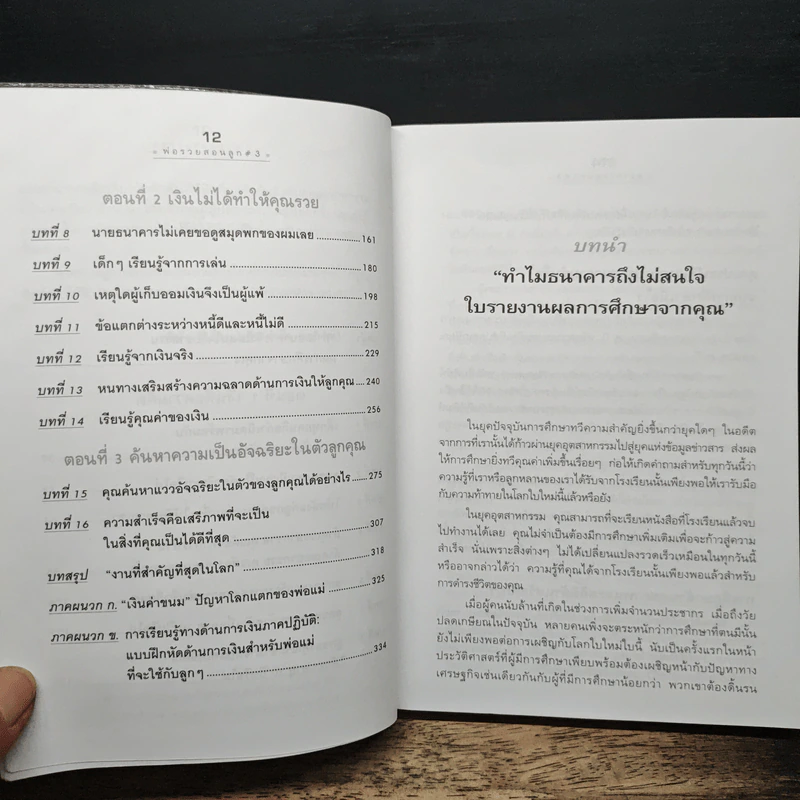 12
พ่อรวยสอนลูก # 3
ตอนที่ 2 เงินไม่ได้ทำให้คุณรวย
บทที่ 8 นายธนาคารไม่เคยขอดูสมุดพกของผมเลย 161
บทที่ 9 เด็กๆ เรียนรู้จากการเล่น 180
บทที่ 10 เหตุใดผู้เก็บออมเงินจึงเป็นผู้แพ้ 198
บทที่ 11 ข้อแตกต่างระหว่างหนี้ดีและหนี้ไม่ดี 215
บทที่ 12 เรียนรู้จากเงินจริง 229
บทที่ 13 หนทางเสริมสร้างความฉลาดด้านการเงินให้ลูกคุณ 240
บทที่ 14 เรียนรู้คุณค่าของเงิน 256
ตอนที่ 3 ค้นหาความเป็นอัจฉริยะในตัวลูกคุณ
บทที่ 15 คุณค้นหาแววอัจฉริยะในตัวของลูกคุณได้อย่างไร 275
บทที่ 16 ความสำเร็จคือเสรีภาพที่จะเป็น
ในสิ่งที่คุณเป็นได้ดีที่สุด 307
บทสรุป “งานที่สำคัญที่สุดในโลก” 318
ภาคผนวก ก. “เงินค่าขนม” ปัญหาโลกแตกของพ่อแม่ 325
ภาคผนวก ข. การเรียนรู้ทางด้านการเงินภาคปฏิบัติ:
แบบฝึกหัดด้านการเงินสำหรับพ่อแม่
ที่จะใช้กับลูกๆ 334
บทนำ
“ทำไมธนาคารถึงไม่สนใจ
ใบรายงานผลการศึกษาจากคุณ”
ในยุคปัจจุบันการศึกษาทวีความสำคัญยิ่งขึ้นกว่ายุคใดๆ ในอดีต
จากการที่เรานั้นได้ก้าวผ่านยุคอุตสาหกรรมไปสู่ยุคแห่งข้อมูลข่าวสาร ส่งผล
ให้การศึกษายิ่งทวีคุณค่าเพิ่มขึ้นเรื่อยๆ ก่อให้เกิดคำถามสำหรับทุกวันนี้ว่า
ความรู้ที่เราหรือลูกหลานของเราได้รับจากโรงเรียนนั้นเพียงพอให้เรารับมือ
กับความท้าทายในโลกใบใหม่นี้แล้วหรือยัง
ในยุคอุตสาหกรรม คุณสามารถที่จะเรียนหนังสือที่โรงเรียนแล้วจบ
ไปทำงานได้เลย คุณไม่จำเป็นต้องมีการศึกษาเพิ่มเติมเพื่อจะก้าวสู่ความ
สำเร็จ นั่นเพราะสิ่งต่างๆ ไม่ได้เปลี่ยนแปลงรวดเร็วเหมือนในทุกวันนี้
หรืออาจกล่าวได้ว่า ความรู้ที่คุณได้จากโรงเรียนนั้นเพียงพอแล้วสำหรับ
การดำรงชีวิตของคุณ
เมื่อผู้คนนับล้านที่เกิดในช่วงการเพิ่มจำนวนประชากร เมื่อถึงวัย
ปลดเกษียณในปัจจุบัน หลายคนเพิ่งจะตระหนักว่าการศึกษาที่ตนมีนั้น
ยังไม่เพียงพอต่อการเผชิญกับโลกใบใหม่ใบนี้ นับเป็นครั้งแรกในหน้า
ประวัติศาสตร์ที่ผู้มีการศึกษาเพียบพร้อมต้องเผชิญหน้ากับปัญหาทาง
เศรษฐกิจเช่นเดียวกันกับผู้ที่มีการศึกษาน้อยกว่า พวกเขาต้องดิ้นรน